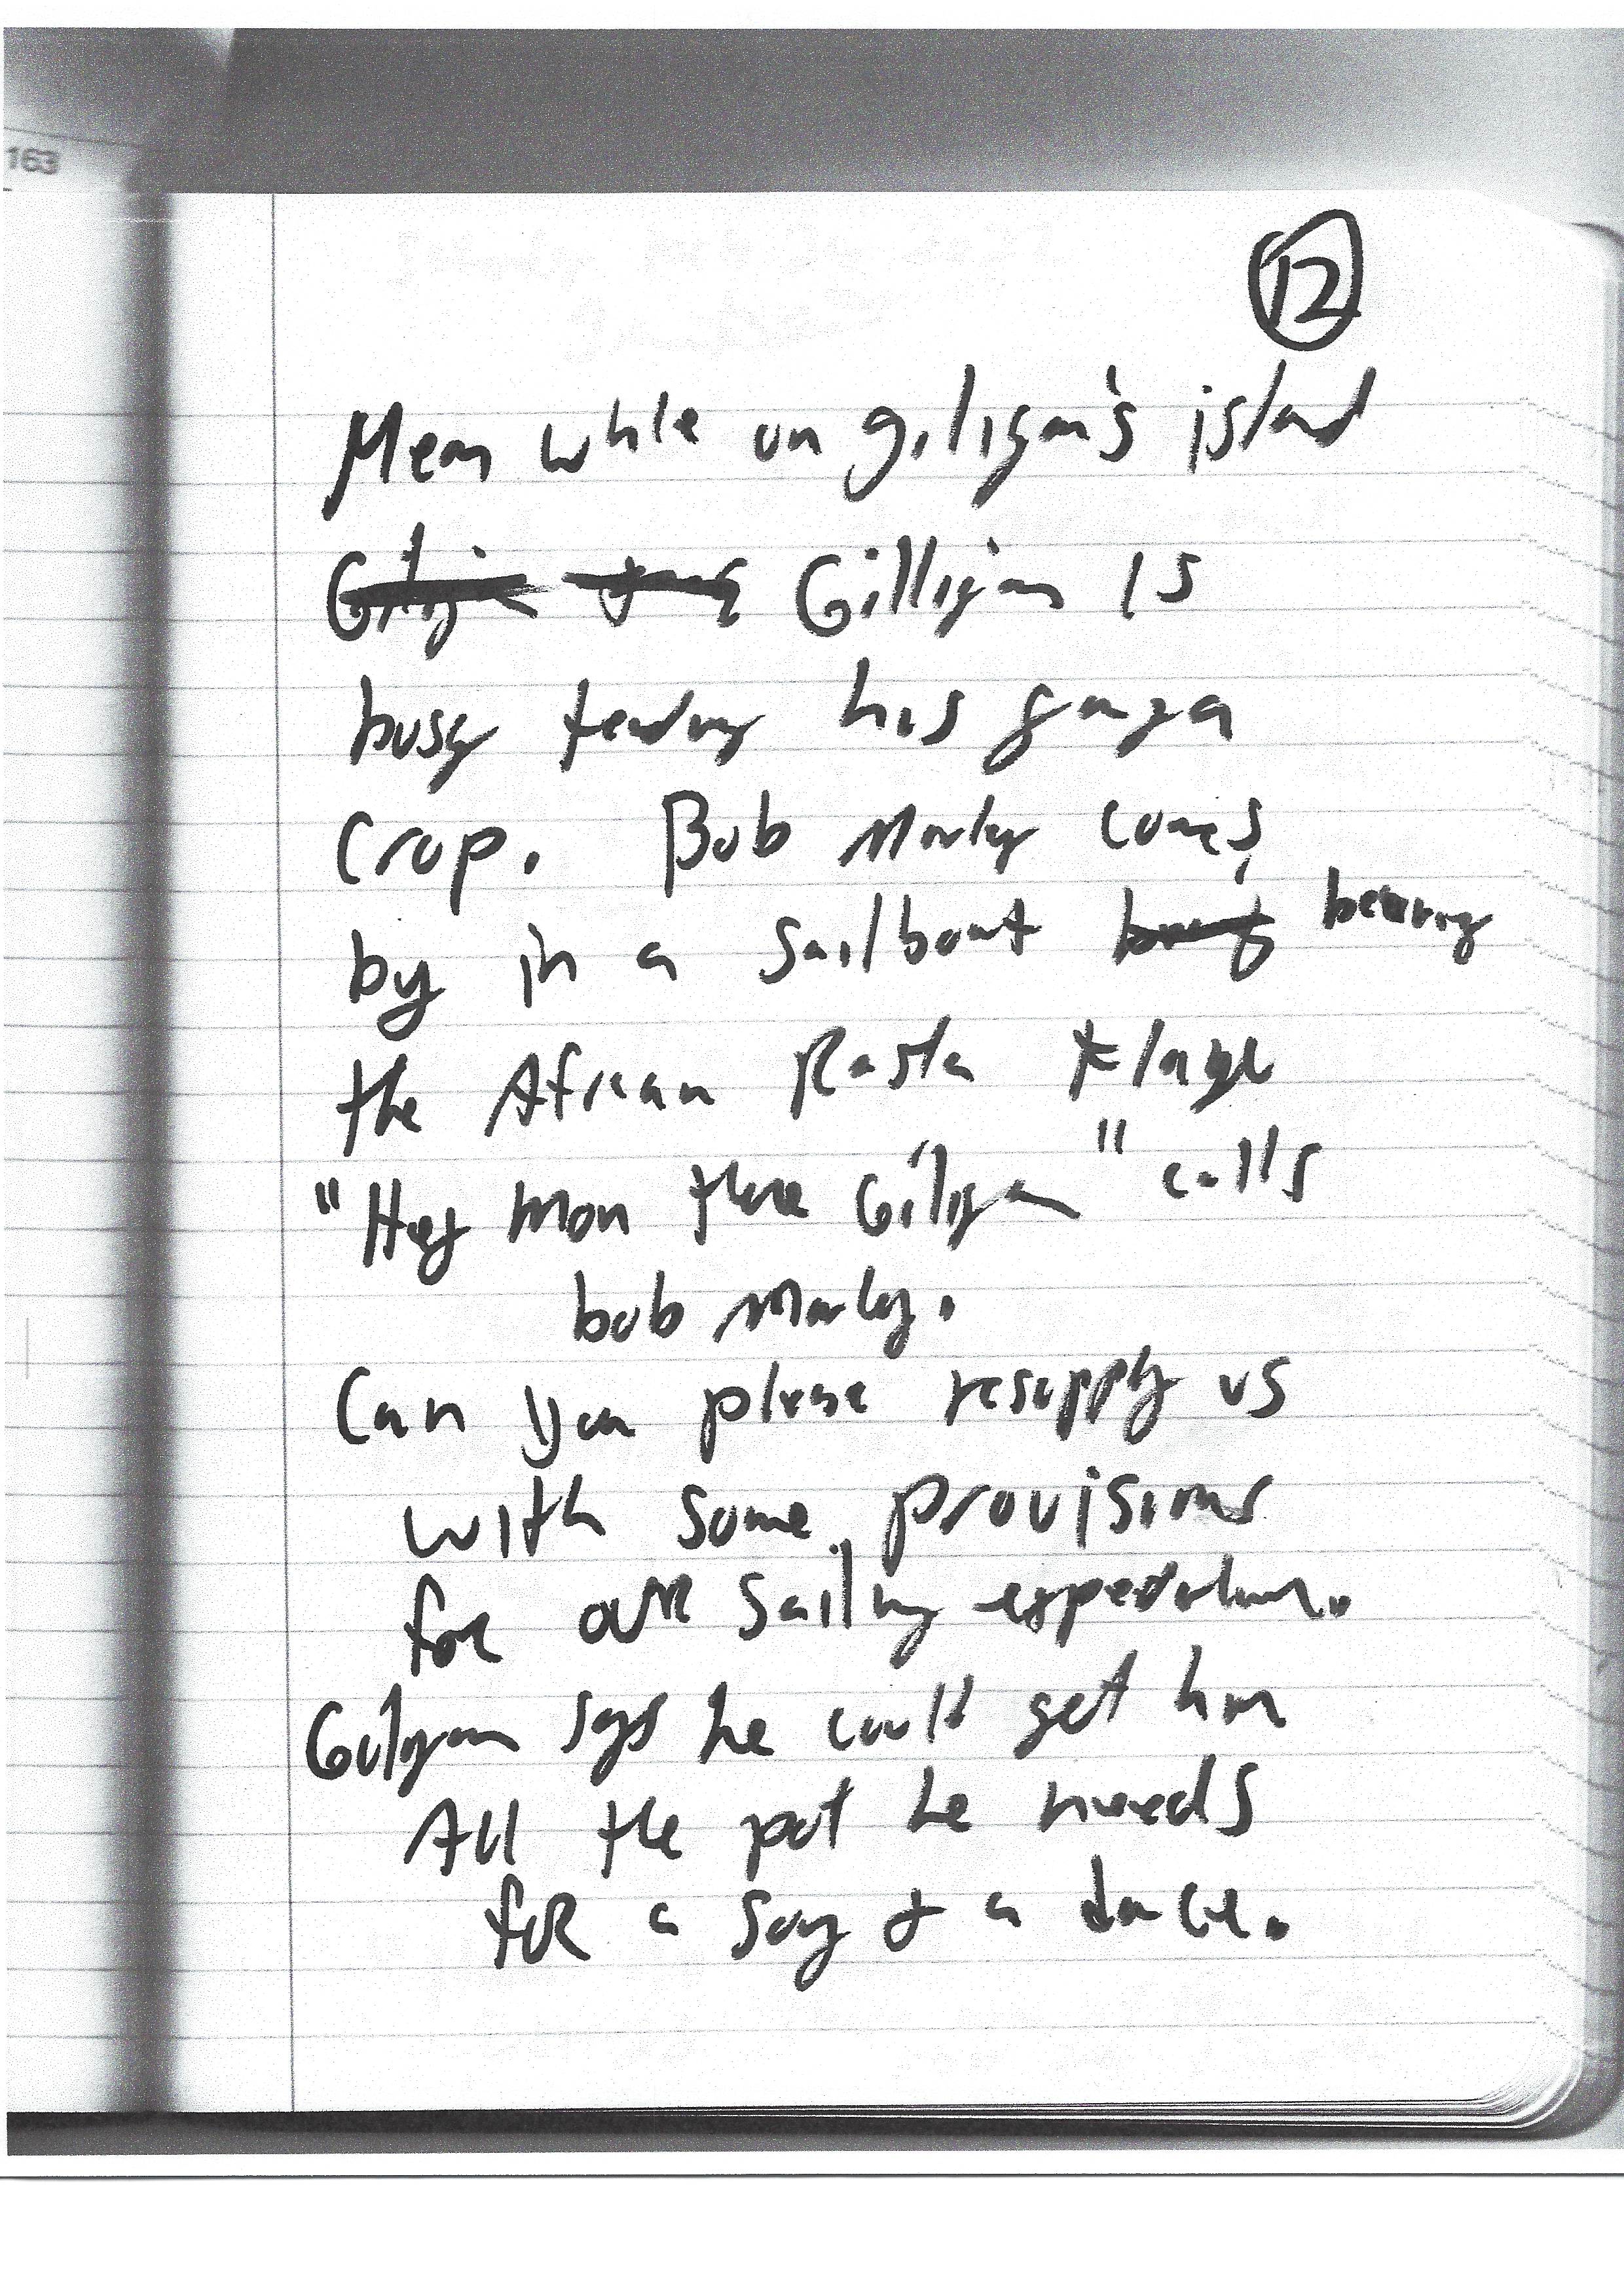 163
12
Mean while on giligan's island
Gilligan is
busy tending his ganja
crop. Bob Marley comes
by in a sailboat bearing
the African Rasta flage
"Hey mon there Giligan" calls
bob Marley.
Can you please resupply us
with some provisions
for our sailing expedition.
Giligan says he could get him
All the pot he needs
for a song & a dance.